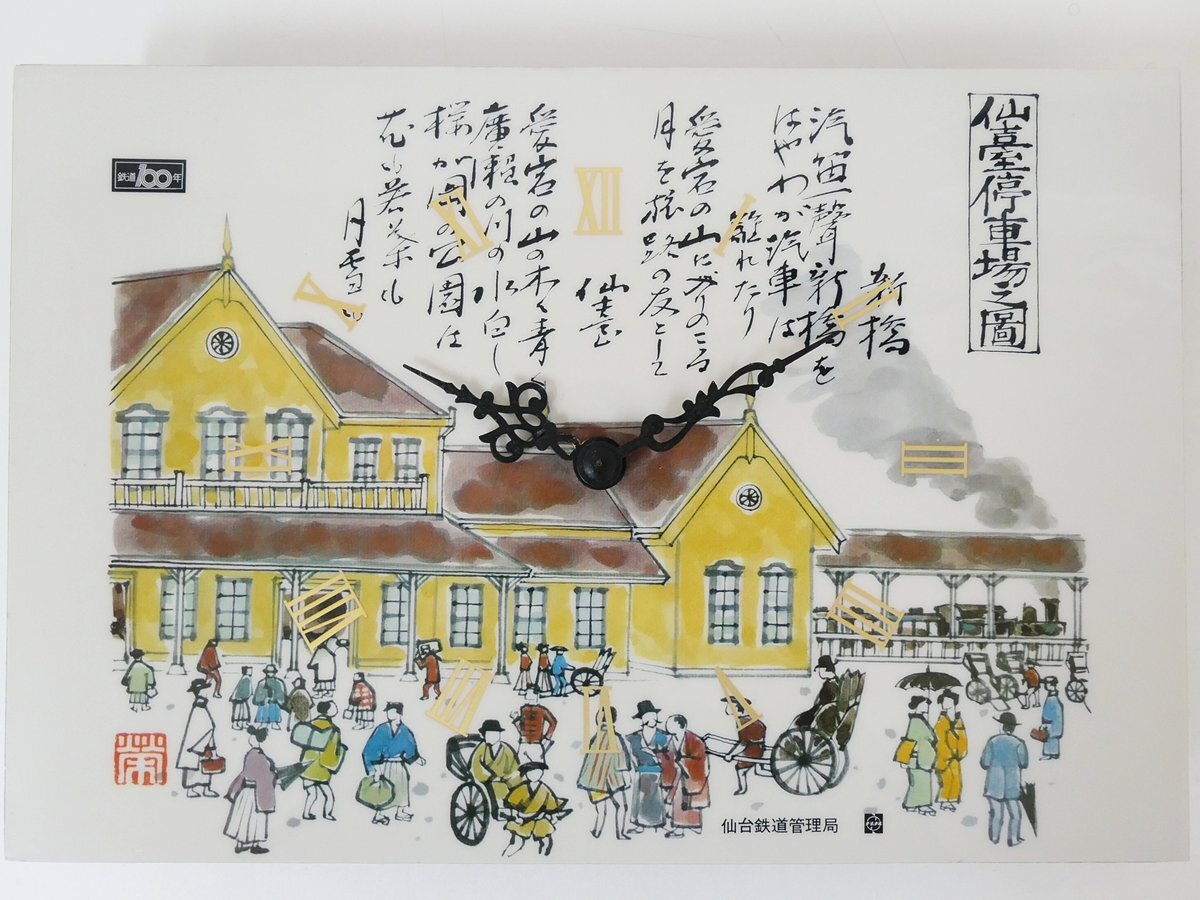 仙臺停車場之圖
新橋
汽笛一聲新橋を
はやわが汽車は
離れたり
愛宕の山に入りのこる
月を旅路の友として
仙臺
愛宕の山の木々青く
廣瀬の川の水白し
櫻が岡の公園は
花も若葉も
月雪も
鉄道100年
XII
I
II
III
IIII
V
VI
VII
VIII
IX
X
XI
仙台鉄道管理局